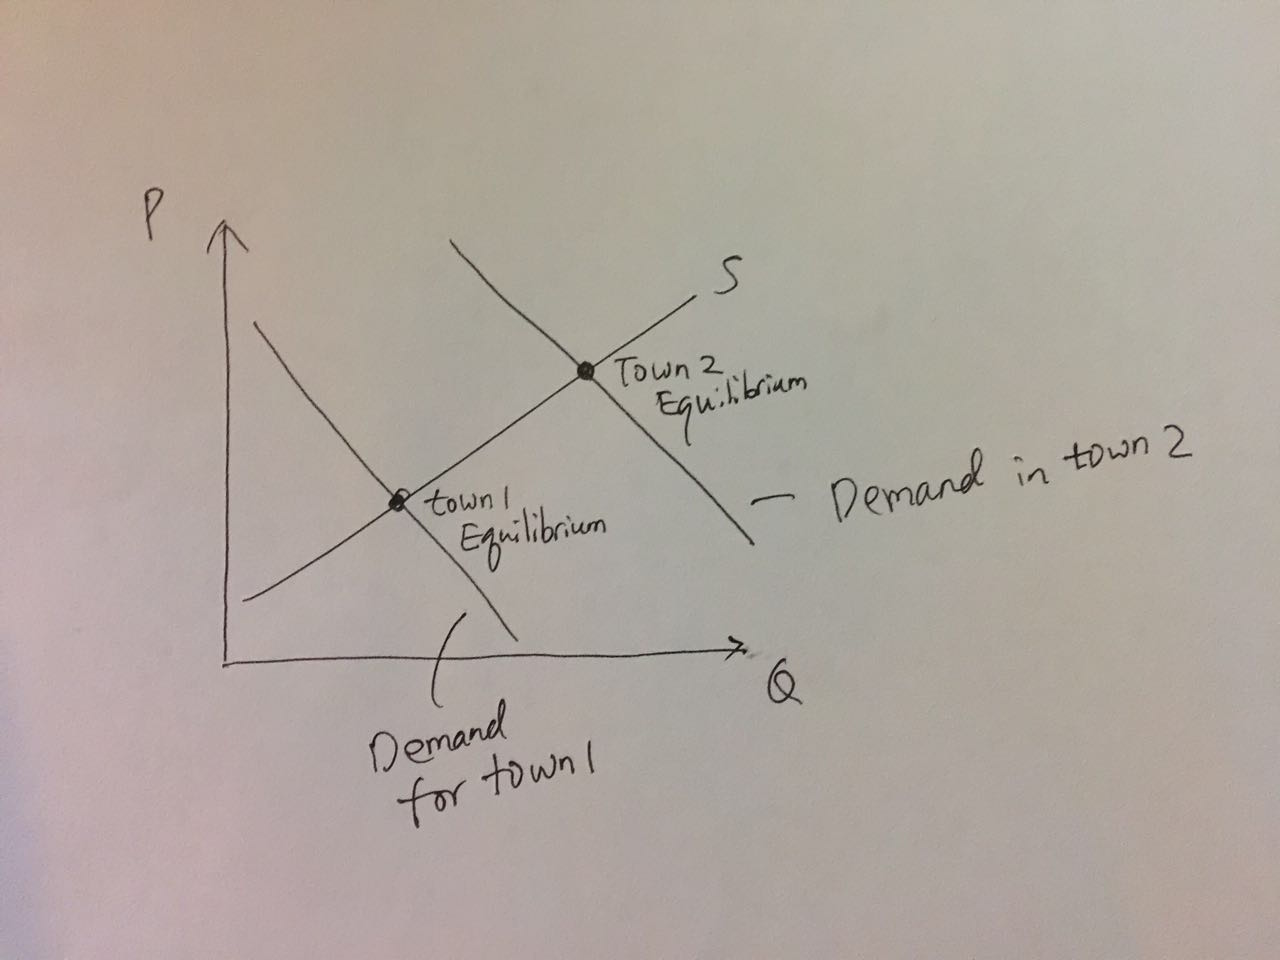 P
S
Town 2
Equilibrium
Demand in town 2
town 1
Equilibrium
Q
Demand
for town 1